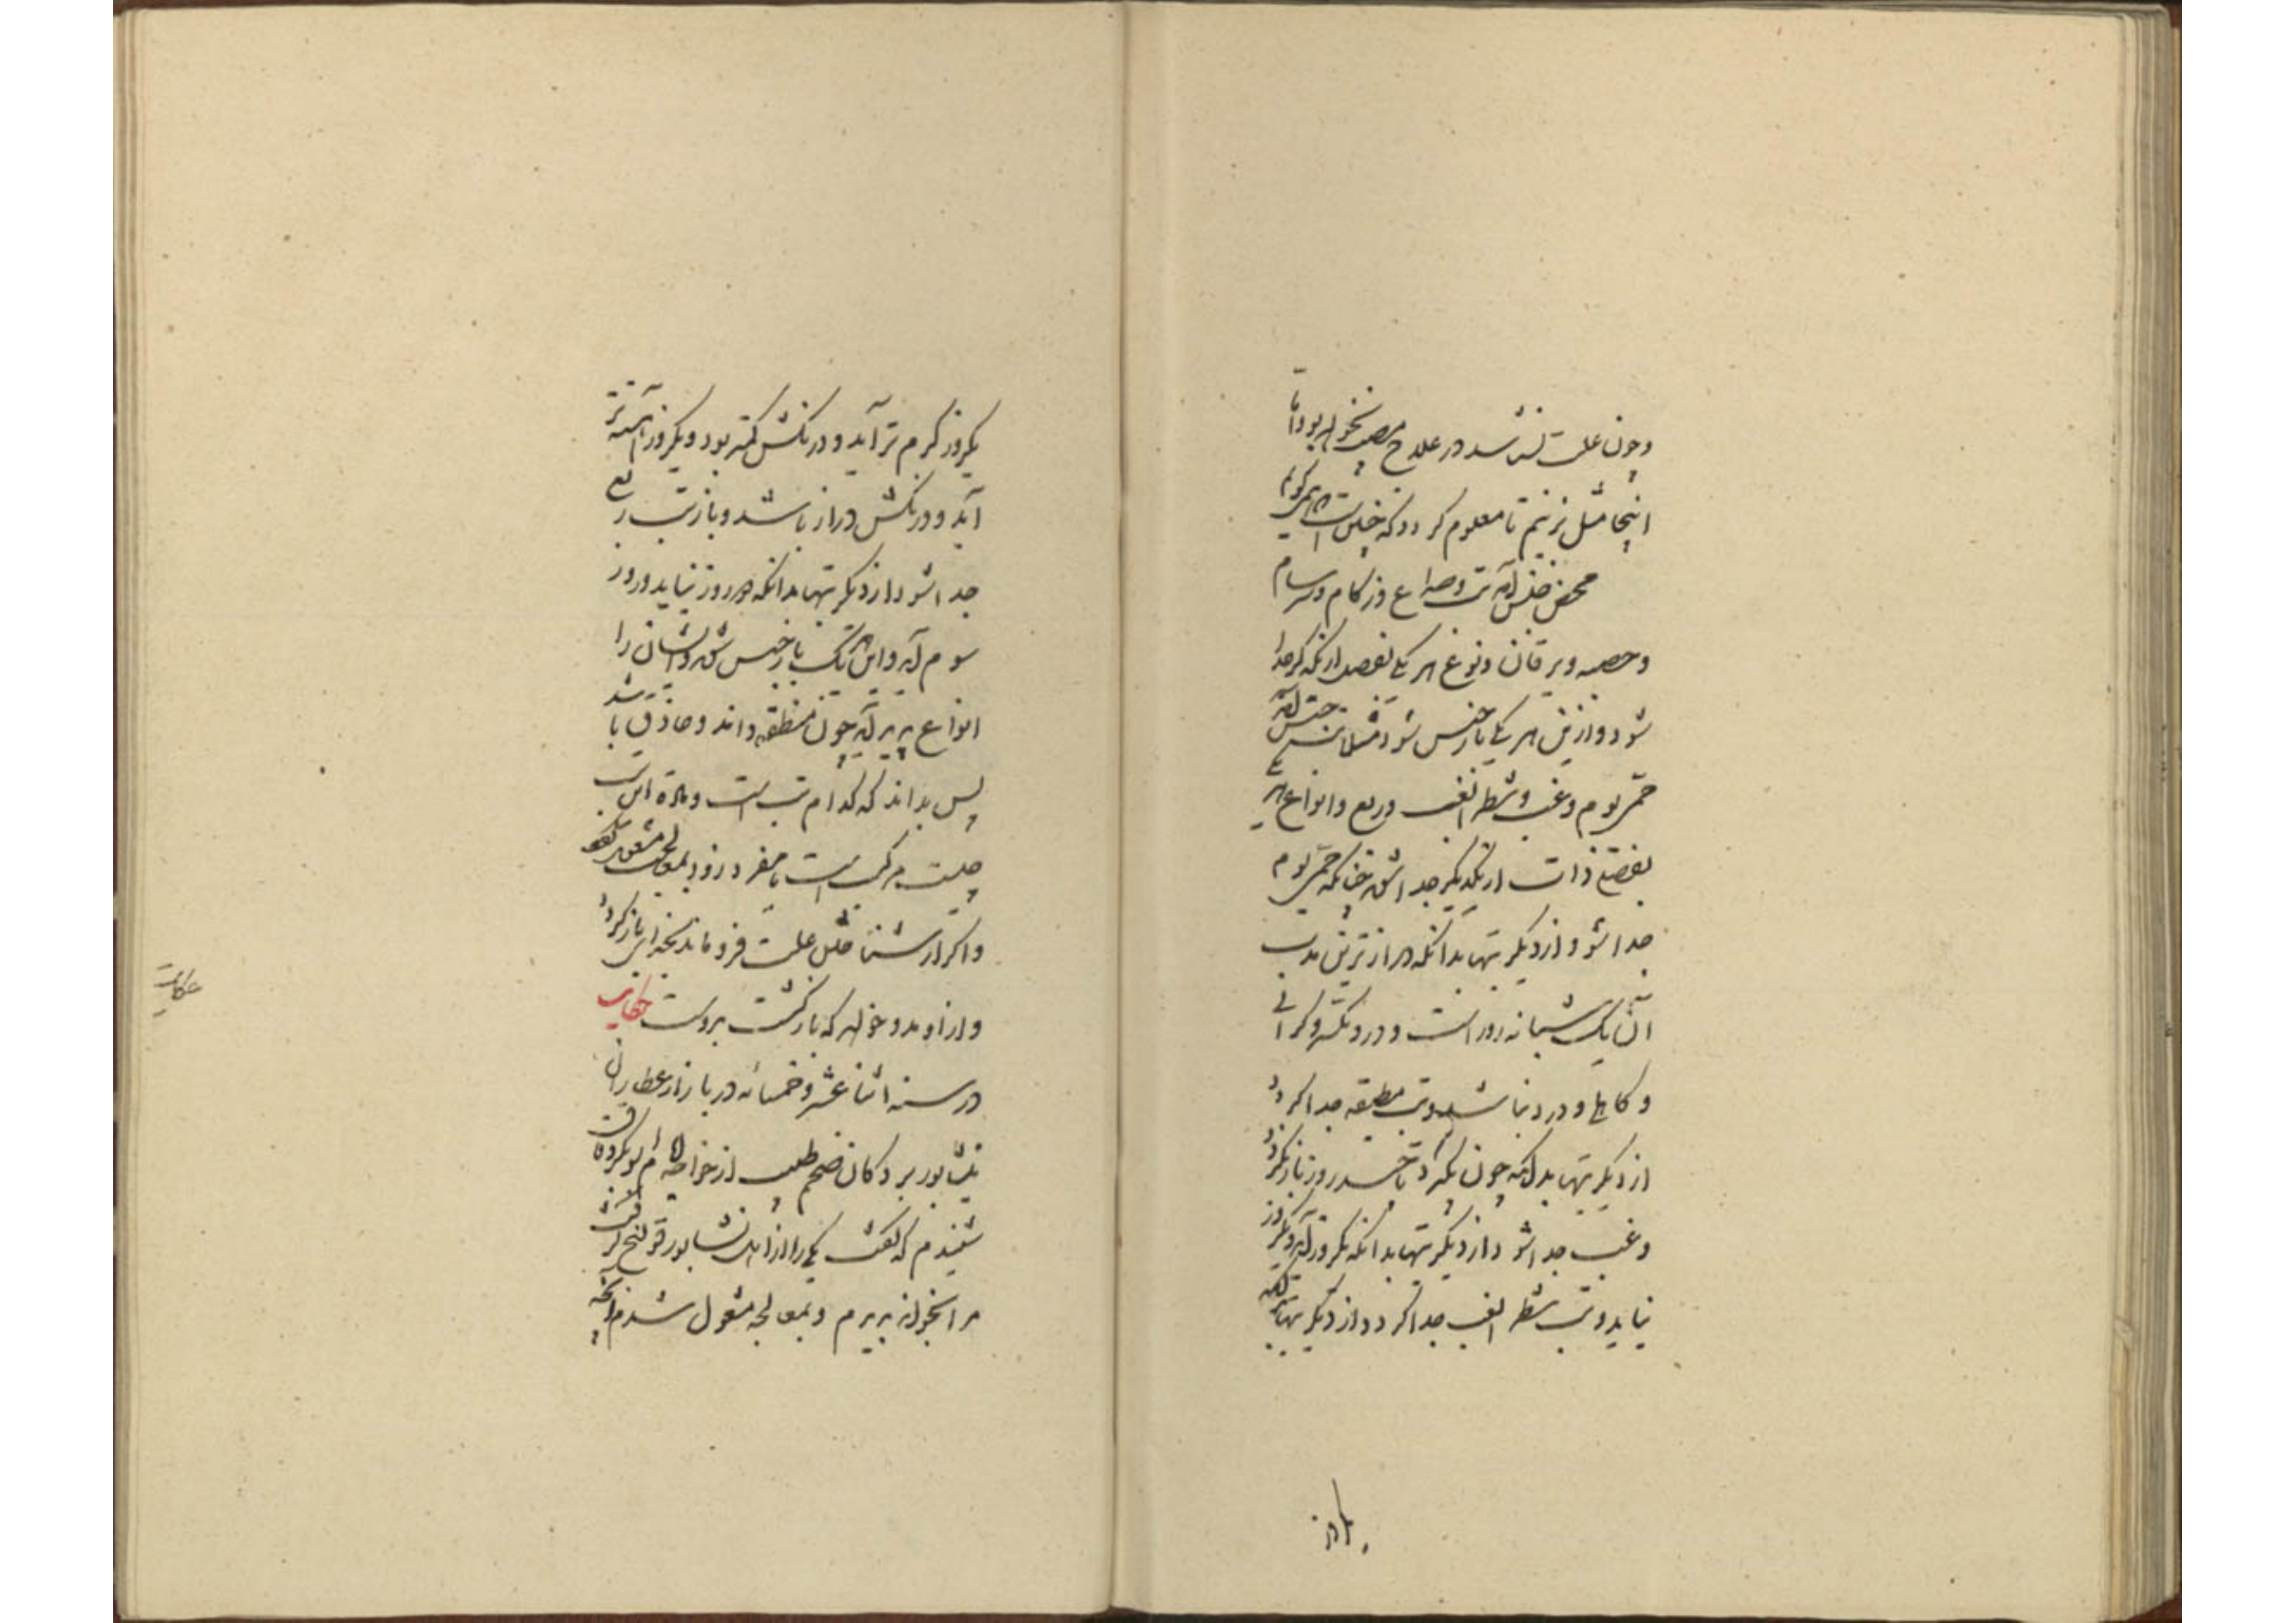 و چون علت نشناسد در علاج مصیب نخواهد بود و اما
اینجا مثل بزنیم تا معلوم گردد که چنین است که همی گویم
محض جنس آمد تب و صداع و زکام و سرسام
و حصبه و یرقان و نوع هر یکی بفصل از یکدیگر جدا
شود و ازین هر یکی باز جنس شود مثلا تب جنس آمد
حمی یوم و غب و شطر الغب و ربع و انواع هر یکی
بفصل ذات از یکدیگر جدا شود چنانکه حمی یوم
جدا شود از دیگر تبها بدانکه درازترین مدت
آن یک شبانه روز است و درو تکسر و گرانی
و کاهلی و درد نباشد و تب مطبقه جدا گردد
از دیگر تبها بدانکه چون بگیرد تا چند روز باز نگردد
و غب جدا شود از دیگر تبها بدانکه یکروز آید و یکروز
نیاید و تب شطر الغب جدا گردد از دیگر تبها بدانکه
یکروز
یکروز گرم تر آید و درنگش کمتر بود و یکروز آهسته تر
آید و درنگش دراز باشد و باز تب ربع
جدا شود از دیگر تبها بدانکه دو روز نیاید و روز
سوم آید و این هر یک باز جنس شود و ایشان را
انواع پدید آید چون منطق داند و حاذق باشد
پس بداند که کدام تب است و ماده این تب
چیست مرکب است یا مفرد زود بمعالجت مشغول گردد
و اگر در شناختن علت فرو ماند بخدای باز گردد
و از او مدد خواهد که بازگشت بدوست حکایت
در سنه اثنا عشر و خمسمائه در بازار عطاران
نیشابور بر دکان طبیب از خواجه امام ابوبکر دقاق
شنیدم که گفت یکی را از اهل نشابور قولنج گرفت
مرا بخواند بدیدم و بمعالجه مشغول شدم و آنچه
حکایت